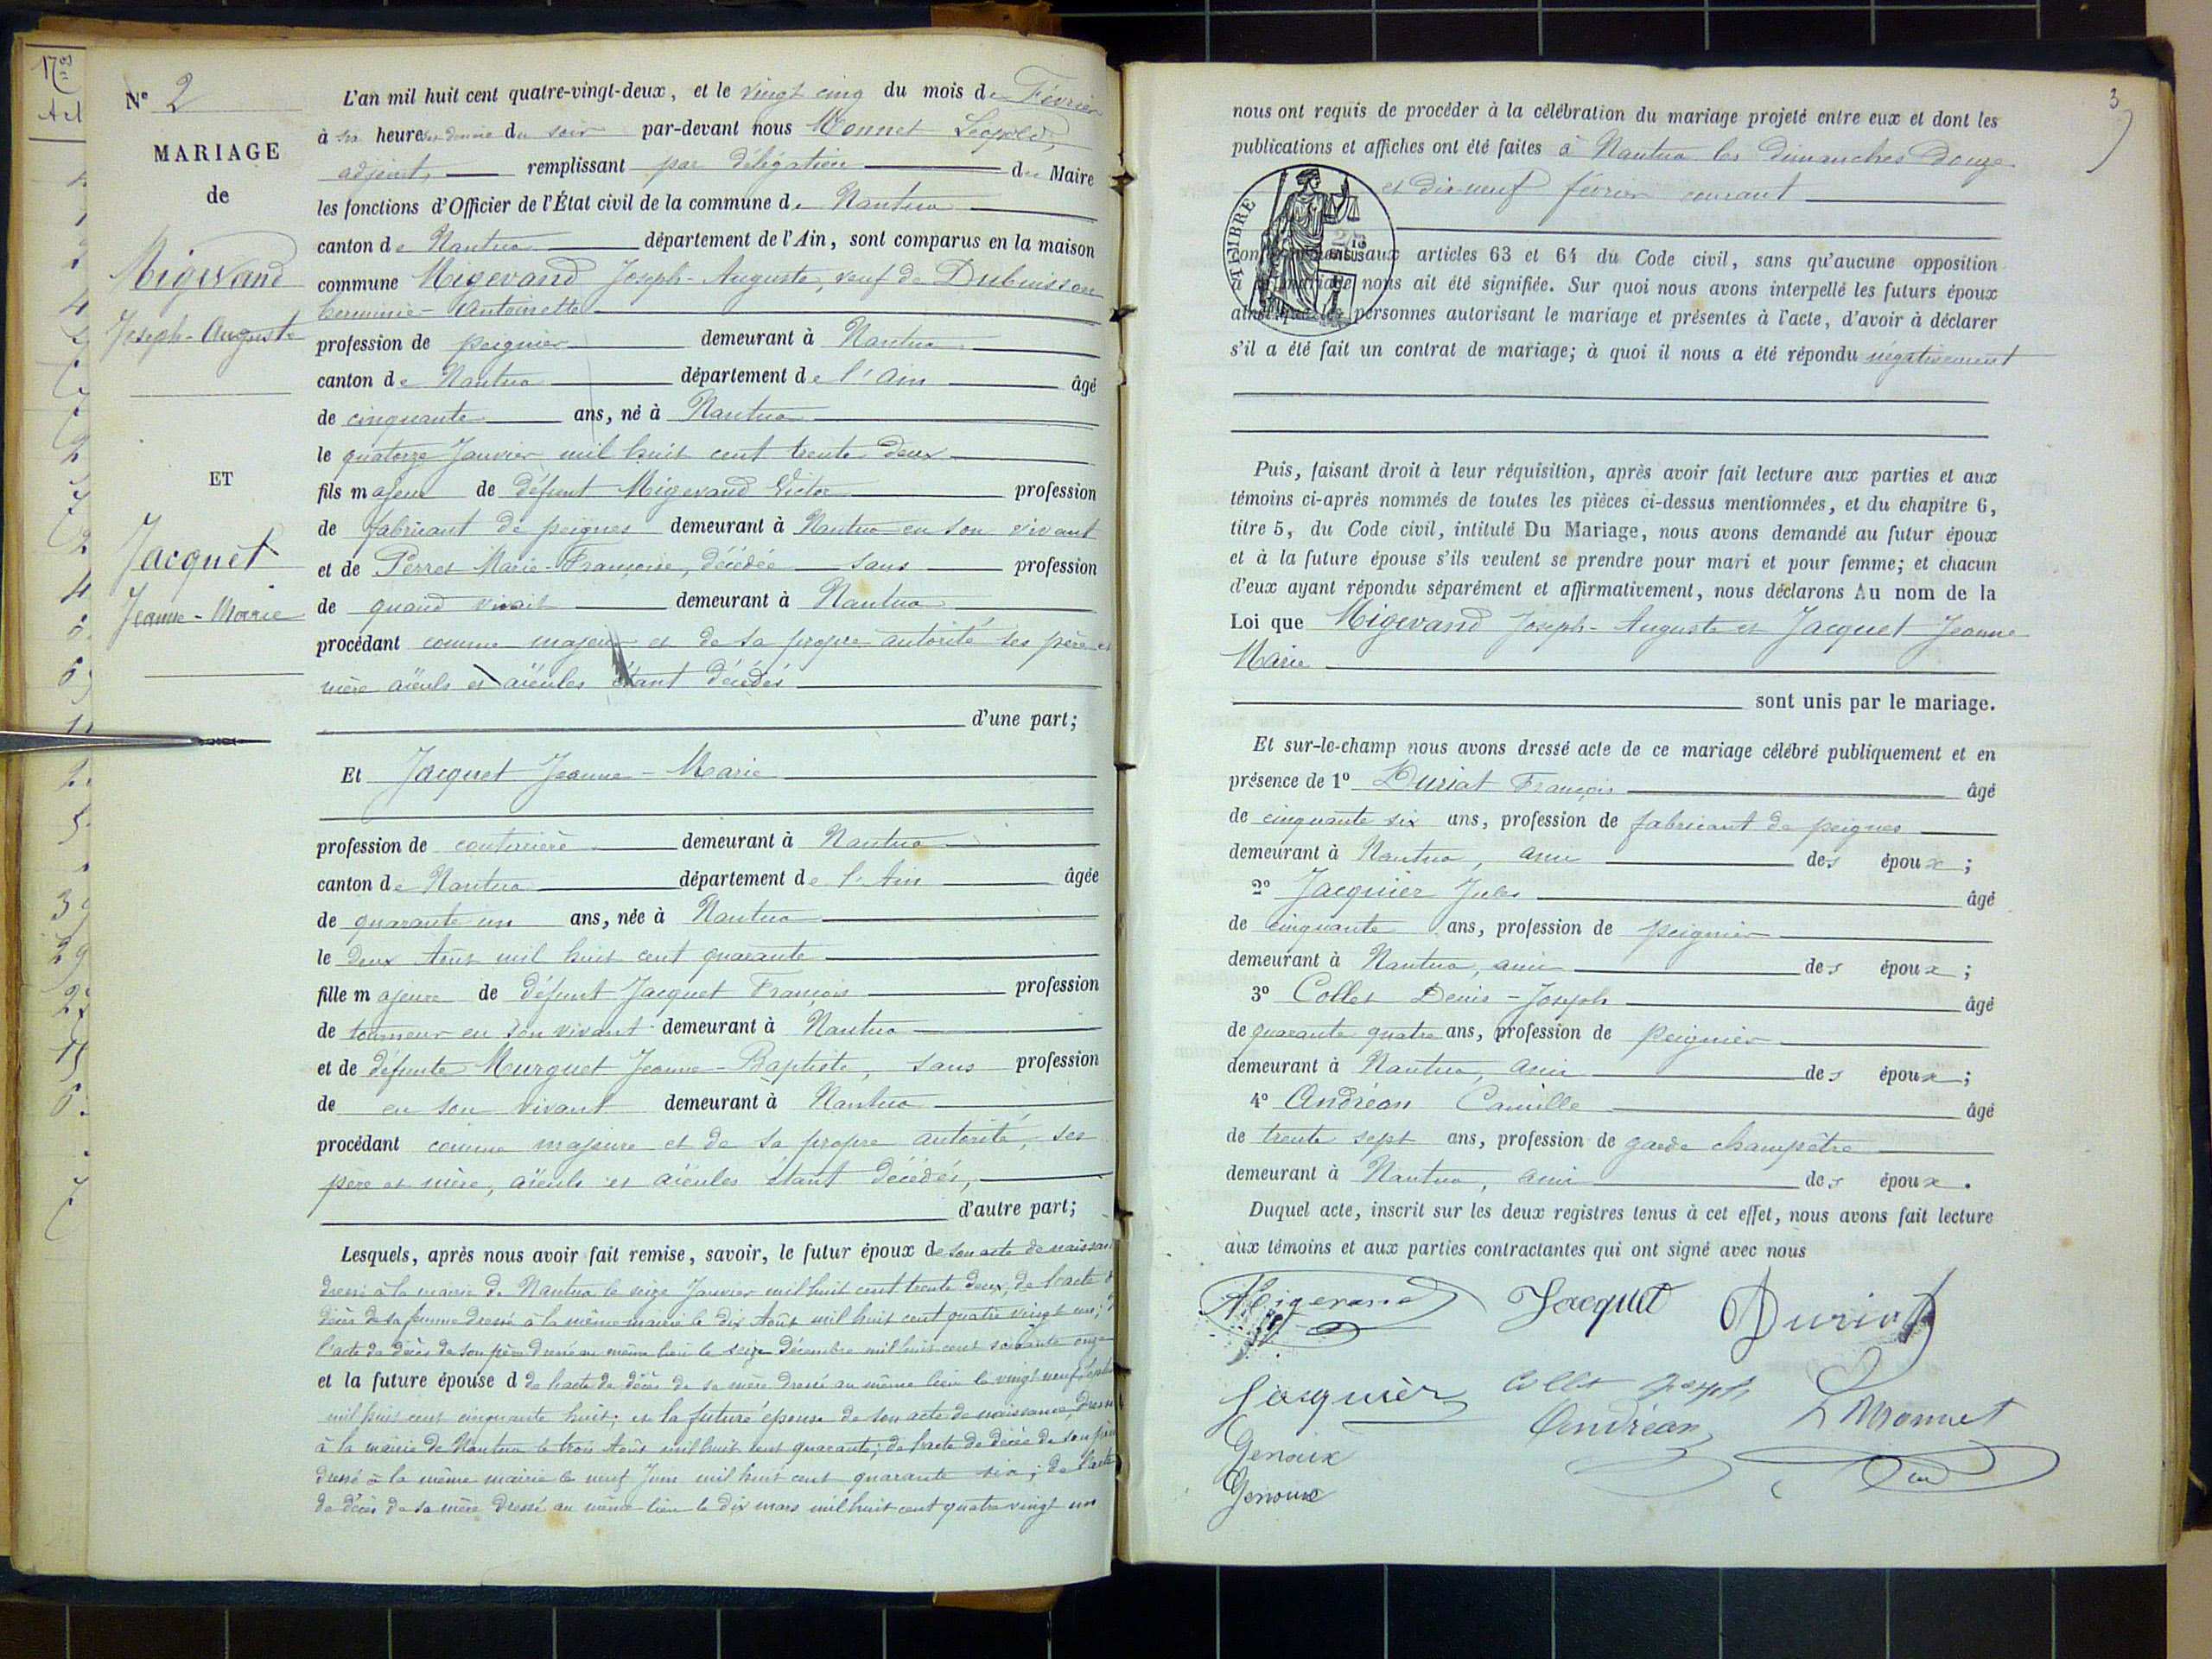 17es
Act
N° 2
MARIAGE
de
Migevand
Joseph-Auguste
ET
Jacquet
Jeanne-Marie
L'an mil huit cent quatre-vingt-deux, et le vingt cinq du mois de Février
à six heures et demie du soir par-devant nous Monnet Léopold,
adjoint, remplissant par délégation du Maire
les fonctions d'Officier de l'État civil de la commune de Nantua
canton de Nantua département de l'Ain, sont comparus en la maison
commune Migevand Joseph-Auguste, veuf de Dubuisson
herminie-Antoinette
profession de peignier demeurant à Nantua
canton de Nantua département de l'Ain âgé
de cinquante ans, né à Nantua
le quatorze Janvier mil huit cent trente deux
fils majeur de défunt Migevand Victor profession
de fabricant de peignes demeurant à Nantua en son vivant
et de Perret Marie-Françoise, décédée sans profession
de quand vivait demeurant à Nantua
procédant comme majeur et de sa propre autorité ses père et
mère aïeuls et aïeules étant décédés
d'une part;
Et Jacquet Jeanne-Marie
profession de couturière demeurant à Nantua
canton de Nantua département de l'Ain âgée
de quarante un ans, née à Nantua
le deux Août mil huit cent quarante
fille majeure de défunt Jacquet François profession
de tourneur en son vivant demeurant à Nantua
et de défunte Murguet Jeanne-Baptiste, sans profession
de en son vivant demeurant à Nantua
procédant comme majeure et de sa propre autorité, ses
père et mère, aïeuls et aïeules étant décédés,
d'autre part;
Lesquels, après nous avoir fait remise, savoir, le futur époux de son acte de naissance
dressé à la mairie de Nantua le seize Janvier mil huit cent trente deux, de l'acte de
décès de sa femme dressé à la même mairie le dix Août mil huit cent quatre vingt un; de
l'acte de décès de son père dressé au même lieu le seize décembre mil huit cent soixante onze
et la future épouse d de l'acte de décès de sa mère dressé au même lieu le vingt neuf
mil huit cent cinquante huit; et la future épouse de son acte de naissance, dressé
à la mairie de Nantua le trois Août mil huit cent quarante; de l'acte de décès de son père
dressé à la même mairie le neuf Juin mil huit cent quarante six; de l'acte
de décès de sa mère dressé au même lieu le dix mars mil huit cent quatre vingt un
3
nous ont requis de procéder à la célébration du mariage projeté entre eux et dont les
publications et affiches ont été faites à Nantua les dimanches douze
et dix-neuf février courant
TIMBRE
conformément aux articles 63 et 64 du Code civil, sans qu'aucune opposition
à ce mariage nous ait été signifiée. Sur quoi nous avons interpellé les futurs époux
ainsi que les personnes autorisant le mariage et présentes à l'acte, d'avoir à déclarer
s'il a été fait un contrat de mariage; à quoi il nous a été répondu négativement
Puis, faisant droit à leur réquisition, après avoir fait lecture aux parties et aux
témoins ci-après nommés de toutes les pièces ci-dessus mentionnées, et du chapitre 6,
titre 5, du Code civil, intitulé Du Mariage, nous avons demandé au futur époux
et à la future épouse s'ils veulent se prendre pour mari et pour femme; et chacun
d'eux ayant répondu séparément et affirmativement, nous déclarons Au nom de la
Loi que Migevand Joseph-Auguste et Jacquet Jeanne
Marie
sont unis par le mariage.
Et sur-le-champ nous avons dressé acte de ce mariage célébré publiquement et en
présence de 1° Duriat François âgé
de cinquante six ans, profession de fabricant de peignes
demeurant à Nantua, ami des époux;
2° Jacquier Jules âgé
de cinquante ans, profession de peignier
demeurant à Nantua, ami des époux;
3° Collet Denis-Joseph âgé
de quarante quatre ans, profession de peignier
demeurant à Nantua, ami des époux;
4° Andréan Camille âgé
de trente sept ans, profession de garde champêtre
demeurant à Nantua, ami des époux.
Duquel acte, inscrit sur les deux registres tenus à cet effet, nous avons fait lecture
aux témoins et aux parties contractantes qui ont signé avec nous
Migevand Jacquet Duriat
Jacquier Collet Joseph
Andréan L Monnet
Genoux
Genoux